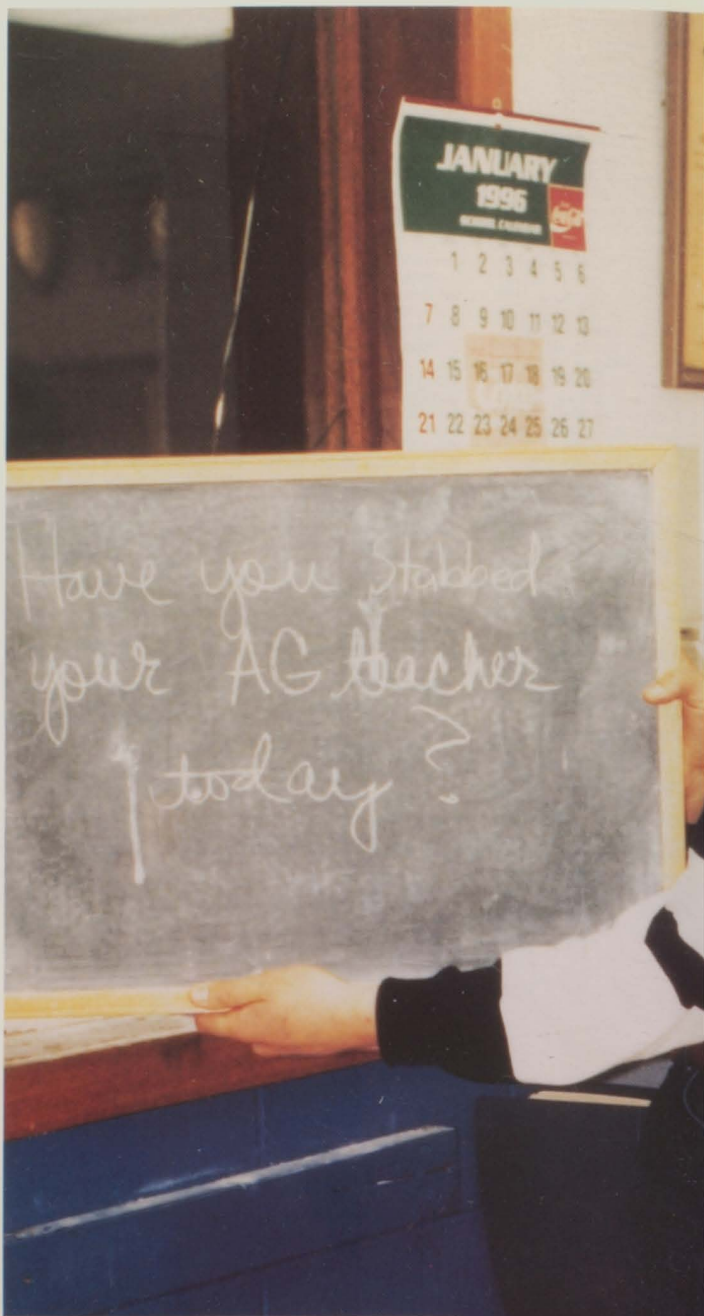 JANUARY
1996
SCHOOL CALENDAR
Coca-Cola
1 2 3 4 5 6
7 8 9 10 11 12 13
14 15 16 17 18 19 20
21 22 23 24 25 26 27
Have you Stabbed
your AG teacher
today?